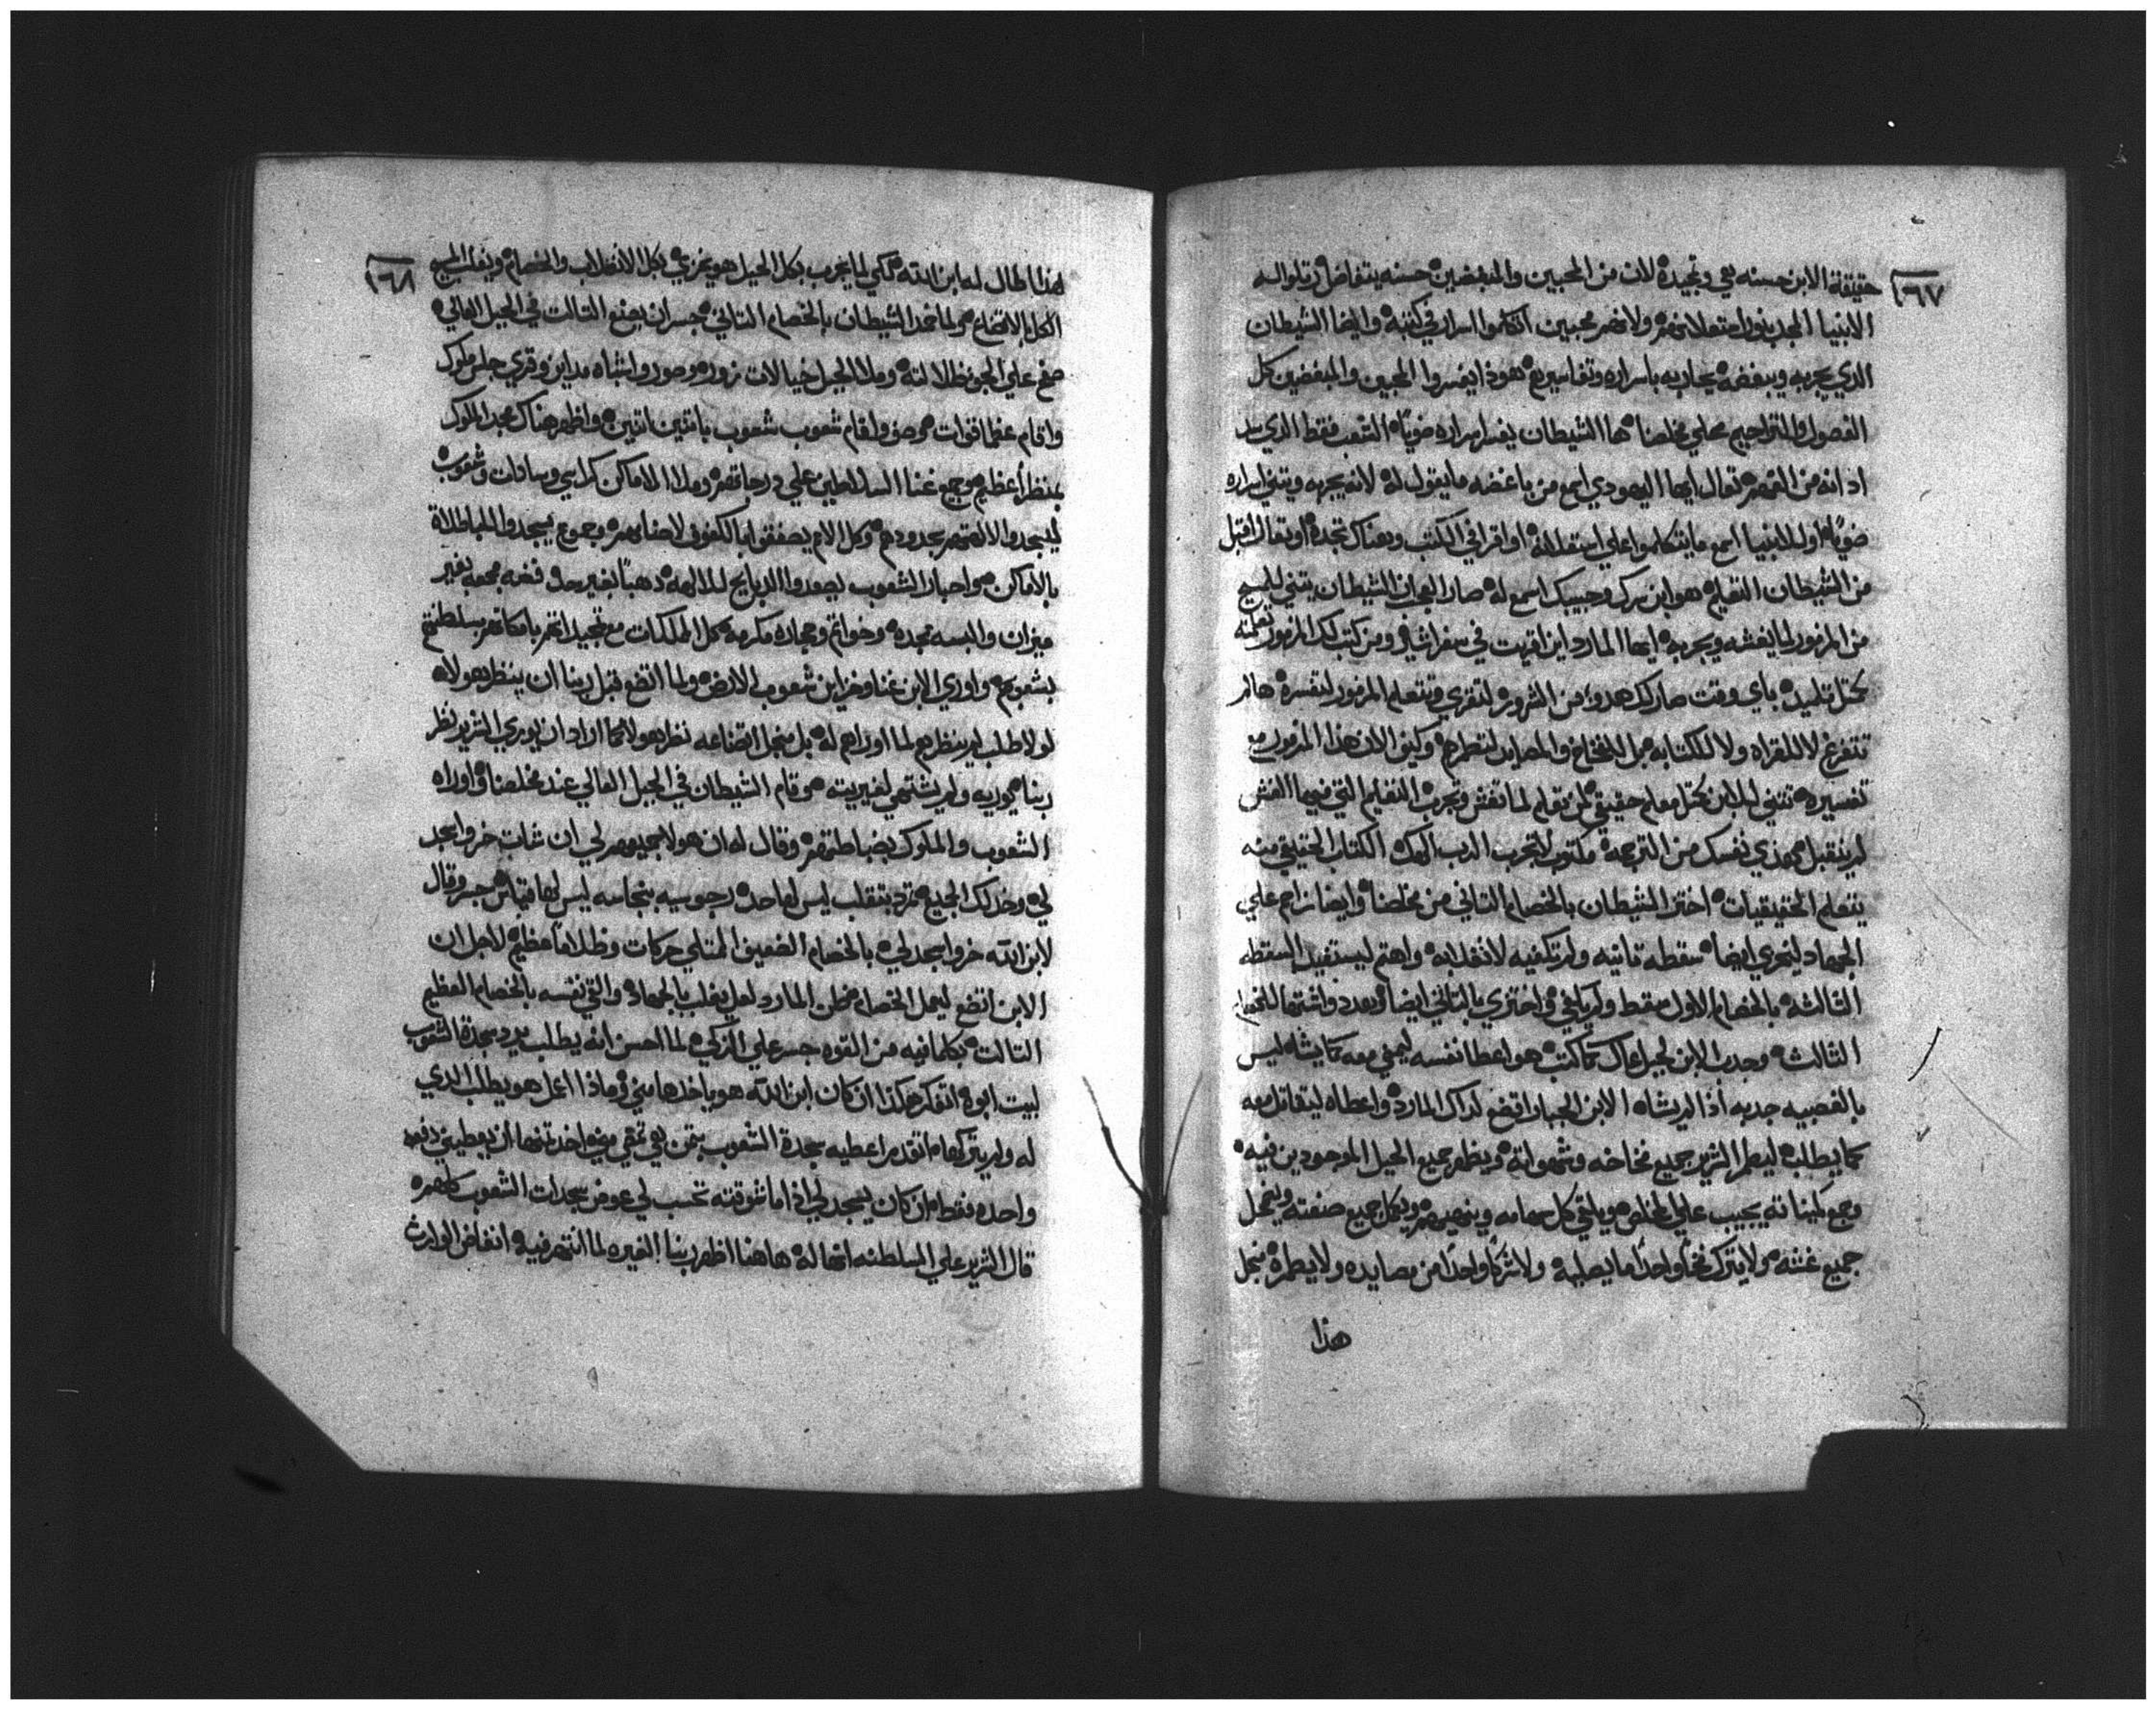 ١٦٧
حقيقة الابن حسنه هي وتجيده لان من المحبين والمبغضين حسنه يتفاضل
الانبيا المجد بنور ولا نهم محبين اتكلموا اسراره في كتبه وايضا الشيطان
الذي يجربه ويبغضه يحاربه باسراره وتفاسيره هوذا يفسروا المحبين والمبغضين كل
الفصول والتراجيم محلي مخلصنا ها الشيطان يفسر اسراره ضويًا الشعب فقط الذي
اذ انه من تعال ايها اليهودي اسمع من باغضه ما يقول له لانه يجربه ويثني اسراره
ضويًا اولا للانبيا اسمع ما يتكلموا علي او اقرا في الكتب وهناك تجده او تعال اقبل
من الشيطان التعليم هو ابن سرك وحبيبك اسمع له صار العجب ان الشيطان يثني للمسيح
من المزمور لما يغشه ويجربه ايها المارد اين قريت في سفر ومن كتب لك المزمور تعلمته
باي وقت صار لك هدوء من الشرور لتقري وتتعلم المزمور لتفسره
تتفرغ لا للقراه ولا للكتابه بل للفخاخ والمصايد لتطمرهم وكيف الان هذا المزمور مع
تفسيره تثني للابن كمثل معلم حقيقي لم تعلم لما تغش وتجرب التعليم التي فيها الغش
لم ينقبل من الترجمه مكتوب لا تجرب الرب الهك الكتاب الحقيقي منه
يتعلم الحقيقيات اختزا الشيطان بالخصام الثاني من مخلصنا وايضا زاحم علي
الجهاد ليخزي ايضا سقطه ثانيه ولم تكفيه لانغلابه واهتم ليستفيد السقطه
الثالثه بالخصام الاول سقط واختزي بالثاني ايضا وبعده واشتها للخصام
الثالث وجذب الابن لجبل عال كما كتب هو اعطا نفسه ليمضي معه كما يشاه ليس
بالغصبيه جذبه اذا لم يشاه الابن الجبار اقضع لذاك المارد واعطاه ليتقاتل معه
كما يطلبه ليطمر الشرير جميع فخاخه وشهواته ويظهر جميع الحيل الموجودين فيه
وجميع كميناته يجيب علي المخلص ويلقي كل سهامه ويكمل جميع صنعته وينحل
جميع غشه ولا يترك فخًا واحدًا ما يصليه ولا شركًا واحدًا من مصايده ولا يطمره بجل
هذا
١٦٨
هذا اطال له ابن الله لكي لما يجرب بكل الحيل هو يخزي بكل الانغلاب والخصام ويغلب المسيح
الكل بالاتضاع ولما خمد الشيطان بالخصام الثاني جسر ان يصنع الثالث في الجبل العالي
صنع علي الجو ظلالته وملا الجبل خيالات زوره وصور واشباه مداين وقري جلس ملوك
واقام عظما قوات وصف واقام شعوب شعوب باثنين اثنين واظهر هناك مجد الملوك
بمنظر اعظم وجمع غنا السلاطين علي درجاتهم وملا الاماكن كراسي وسادات وشعوب
ليسجدوا لالهتهم بحدودهم وكل الامم يصفقوا بالكفوف لاصنامهم وجموع يسجدوا للباطلاة
بالاماكن واحبار الشعوب يصعدوا الذبايح للالهه ذهبًا بغير حد فضه مجمعه بغير
ميزان والبسه مجده وخواتم وحجاره مكرمه كل المملكات مع تمجيداتهم باماكنهم بسلطنتهم
بشعوبهم واوري الابن غنا وخزاين شعوب الارض ولما اتضع قبل ربنا ان ينظر هولاه
لولا طلب لم ينظرهم لما اوراهم له بل منجل اتضاعه نظر هولا كما اراد ان يوري الشرير نظر
ربنا يوريه ولم يشتهي لغيريته قام الشيطان في الجبل العالي عند مخلصنا واوراه
الشعوب والملوك بضباطتهم وقال له ان هولا جميعهم لي ان شات خر واسجد
لي وخد لك الجميع تمرد بتقلب ليس لها حد رجوسيه بنجاسه ليس لها قياس جسر وقال
لابن الله خر واسجد لي بالخصام الضعيف الممتلي حركات وظلامًا عظيم لاجل ان
الابن اتضع ليعمل الخصام ظن المارد لعل يغلب بالجهاد والقي نفسه بالخصام العظيم
الثالث بكلما فيه من القوه جسر علي الزكي لما احس انه يطلب يرد سجدة الشعوب
لبيت ابوه افتكر هكذا ان كان ابن الله هو ياخذها مني وماذا اعمل هو يطلب الذي
له ولم يتركها اتقدم اعطيه سجدة الشعوب بثمن اخذ ثمنها ان يعطيني دفعه
واحده فقط ان كان يسجد لي اذا ما شوقته تحسب لي عوض سجدات الشعوب كلهم
قال الشرير علي السلطنه انها له هاهنا اظهر ربنا الغيره لما انتهر فيه الوارث